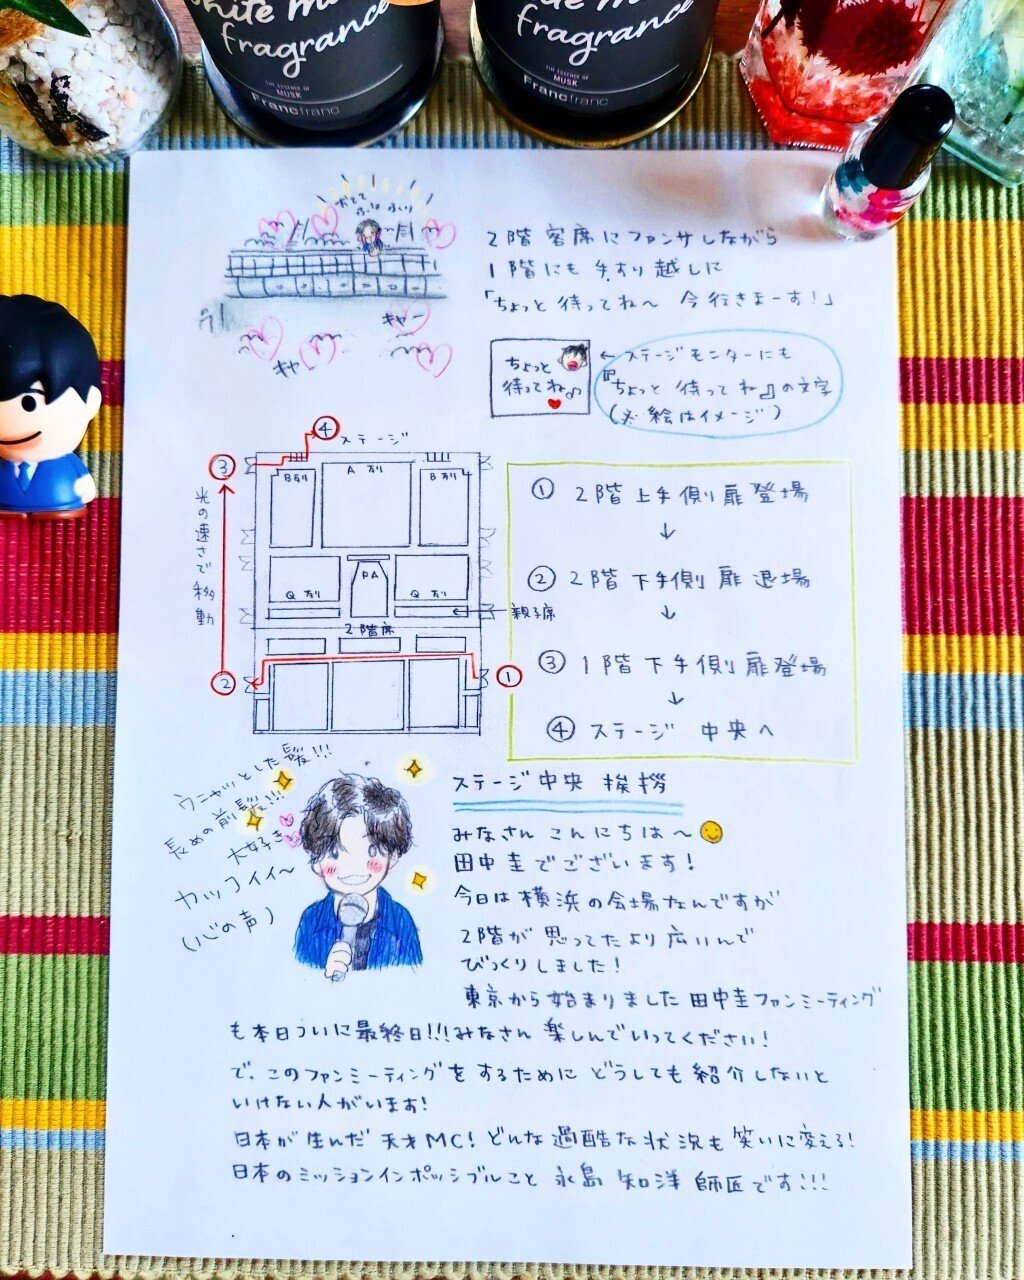 White Mu
fragrance
THE ESSENCE OF
MUSK
Francfranc
fragrance
THE ESSENCE OF
MUSK
Francfranc
おてて
ふりふり
キャー
キャ
2階客席にファンサしながら
1階にも手すり越しに
「ちょっと待ってね〜 今行きまーす!」
ちょっと
待ってね♪
← ステージモニターにも
『ちょっと待ってね』の文字
(※絵はイメージ)
④ ステージ
③
B列
A列
B列
光の速さで移動
PA
Q列
Q列
親子席
2階席
②
①
① 2階上手側扉登場
↓
② 2階下手側扉退場
↓
③ 1階下手側扉登場
↓
④ ステージ 中央へ
ウニャッとした髪!!!
長めの前髪!!!
大好き
カッコイイ〜
(心の声)
ステージ中央 挨拶
みなさん こんにちは〜
田中圭でございます!
今日は横浜の会場なんですが
2階が思ってたより広いんで
びっくりしました!
東京から始まりました田中圭ファンミーティング
も本日ついに最終日!!!みなさん楽しんでいってください!
で、このファンミーティングをするためにどうしても紹介しないと
いけない人がいます!
日本が生んだ天才MC!どんな過酷な状況も笑いに変える!
日本のミッションインポッシブルこと 永島知洋師匠です!!!